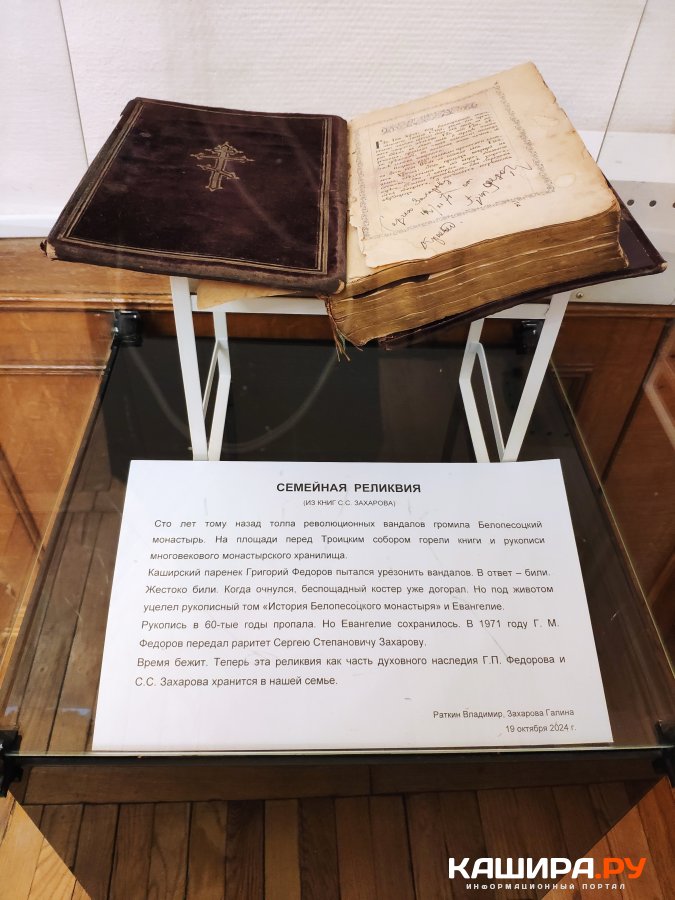 СЕМЕЙНАЯ РЕЛИКВИЯ
(ИЗ КНИГ С.С. ЗАХАРОВА)
Сто лет тому назад толпа революционных вандалов громила Белопесоцкий
монастырь. На площади перед Троицким собором горели книги и рукописи
многовекового монастырского хранилища.
Каширский паренек Григорий Федоров пытался урезонить вандалов. В ответ – били.
Жестоко били. Когда очнулся, беспощадный костер уже догорал. Но под животом
уцелел рукописный том «История Белопесоцкого монастыря» и Евангелие.
Рукопись в 60-тые годы пропала. Но Евангелие сохранилось. В 1971 году Г. М.
Федоров передал раритет Сергею Степановичу Захарову.
Время бежит. Теперь эта реликвия как часть духовного наследия Г.П. Федорова и
С.С. Захарова хранится в нашей семье.
Раткин Владимир, Захарова Галина
19 октября 2024 г.
КАШИРА.РУ
ИНФОРМАЦИОННЫЙ ПОРТАЛ